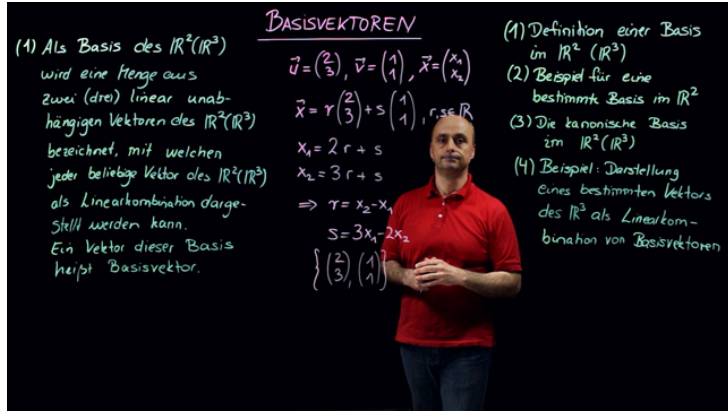 BASISVEKTOREN
(1) Als Basis des ℝ²(ℝ³)
wird eine Menge aus
zwei (drei) linear unab-
hängigen Vektoren des ℝ²(ℝ³)
bezeichnet, mit welchen
jeder beliebige Vektor des ℝ²(ℝ³)
als Linearkombination darge-
stellt werden kann.
Ein Vektor dieser Basis
heißt Basisvektor.
u⃗ = (2 3), v⃗ = (1 1), x⃗ = (x₁ x₂)
x⃗ = r (2 3) + s (1 1), r,s∈ℝ
x₁ = 2r + s
x₂ = 3r + s
⇒ r = x₂ - x₁
s = 3x₁ - 2x₂
{(2 3), (1 1)}
(1) Definition einer Basis
im ℝ² (ℝ³)
(2) Beispiel für eine
bestimmte Basis im ℝ²
(3) Die kanonische Basis
im ℝ²(ℝ³)
(4) Beispiel: Darstellung
eines bestimmten Vektors
des ℝ³ als Linearkom-
bination von Basisvektoren